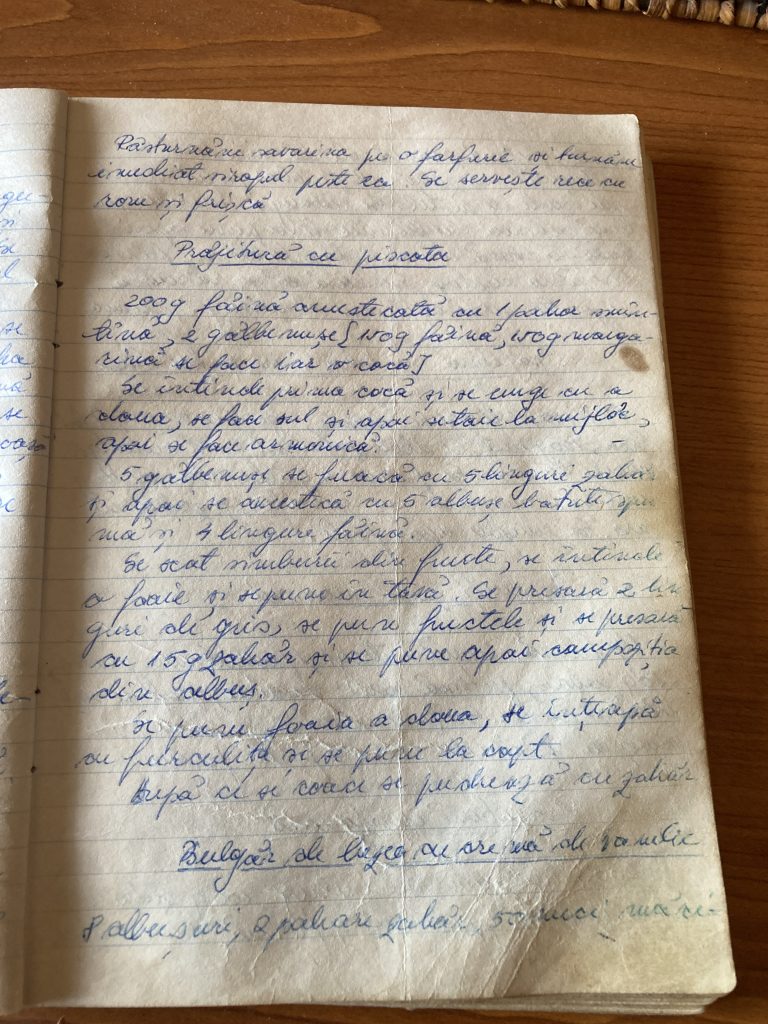 Răsturnăm savarina pe o farfurie si turnăm
imediat siropul peste ea. Se servește rece cu
rom și frișcă
Prăjitură cu piscota
200g făină amestecată cu 1 pahar smîn-
tînă, 2 gălbenușe [150g făină, 150g marga-
rină se face iar o cocă]
Se intinde prima cocă și se unge cu a
doua, se face sul și apoi se taie la mijloc,
apoi se face armonică.
5 gălbenușe se freacă cu 5 linguri zahăr
și apoi se amestică cu 5 albușe bătute spu
mă și 4 lingure făină.
Se scot simburii din fructe, se intinde
o foaie și se pune in tavă. Se presară 2 lin
guri de gris, se pun fructele si se presară
cu 15g zahăr și se pune apoi compoziția
din albuș.
Se pune foaia a doua, se ințeapă
cu furculița și se pune la copt.
După ce se coace se pudrează cu zahăr
Bulgăr de zăpada cu cremă de vanilie
8 albușuri, 2 pahare zahăr, 50 nuci mări-